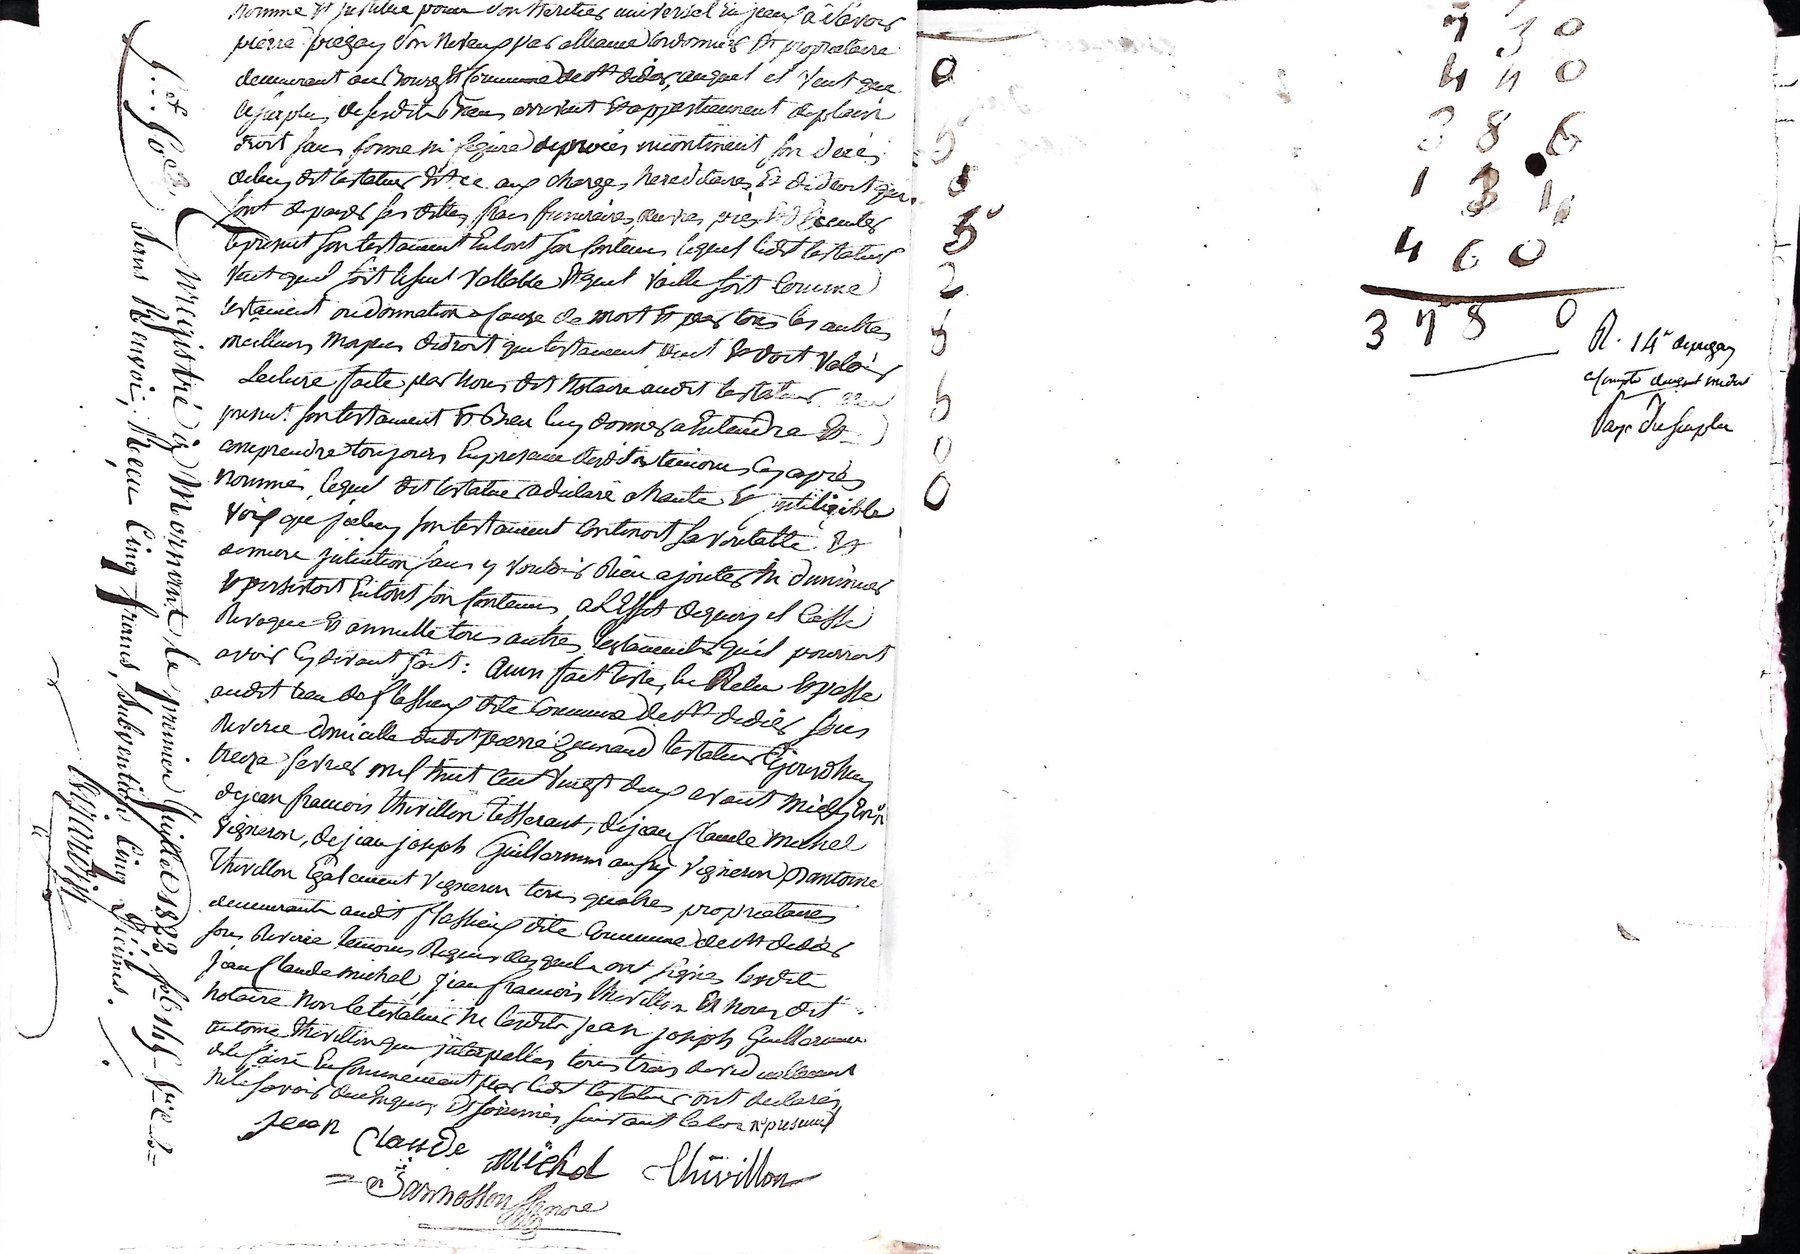 nomme et institue pour son heritier universel en jeux à sçavoir
pierre piegay son neveux par alliance cordonnier et propriétaire
demeurant au Bourg et Commune de St didier, auquel il veut que
le surplus de sesdits Biens arrivent et appartiennent de plein
droit sans forme ni figure de procès incontinent son décès
de luy dit testateur et ce aux charges hereditaires et de droit qui
sont de payer ses dettes, frais funeraires, œuvres pies et d'executer
le présent son testament en tout son contenu lequel ledit testateur
veut quil soit le seul vallable et quil vaille soit comme
testament ou donnation a cause de mort et par tous les autres
meilleurs moyens de droit que testament peut et doit valoir
Lecture faite par nous dit notaire audit testateur du
present son testament et Bien luy donner a Entendre et
comprendre toujours en presence desdits temoins cy après
nommés, lequel dit testateur a déclaré a haute et intiligible
voix que jceluy son testament contenoit sa volonté et
derniere intention sans y vouloir Rien ajouter ni diminuer
et persistoit En tout son contenu, a l'Effet de quoy il casse
Revoque et annulle tous autres testaments quil pourroit
avoir cy devant fait: ainsi fait leste, lu Relu et passé
audit lieu de flassieux dite commune de St didier sous
Riverie domicille dudit pierre testateur ce jourdhuy
treize fevrier mil huit cent vingt deux avant midy En
de jean francois thivillon tisserant, de jean Claude michel
vigneron, de jean joseph Guillermin aussy vigneron et antoine
thivillon Egalement vigneron tous quatres propriétaires
demeurants audit flassieux dite Commune de St didier
sous Riverie temoins Requis desquels ont signés lesdits
jean Claude michel, jean francois thivillon et nous dit
notaire non le testateur ni lesdits jean joseph Guillermin
antoine thivillon qui jnterpellés tous trois
de le faire En commencant par ledit testateur ont declarés
ne le savoir de ce Enquis et sommés suivant la loi
jean Claude Michel thivillon
Enregistré à Mornant le premier juillet 1823 fo 146 Vo
sans Renvoi, Reçu Cinq francs, subvention Cinq Décimes.
0
5
0
5
2
5
5
0
0
7 3 0
4 4 0
3 8 6
1 3 4
4 6 0
3 7 8 0
R. 14